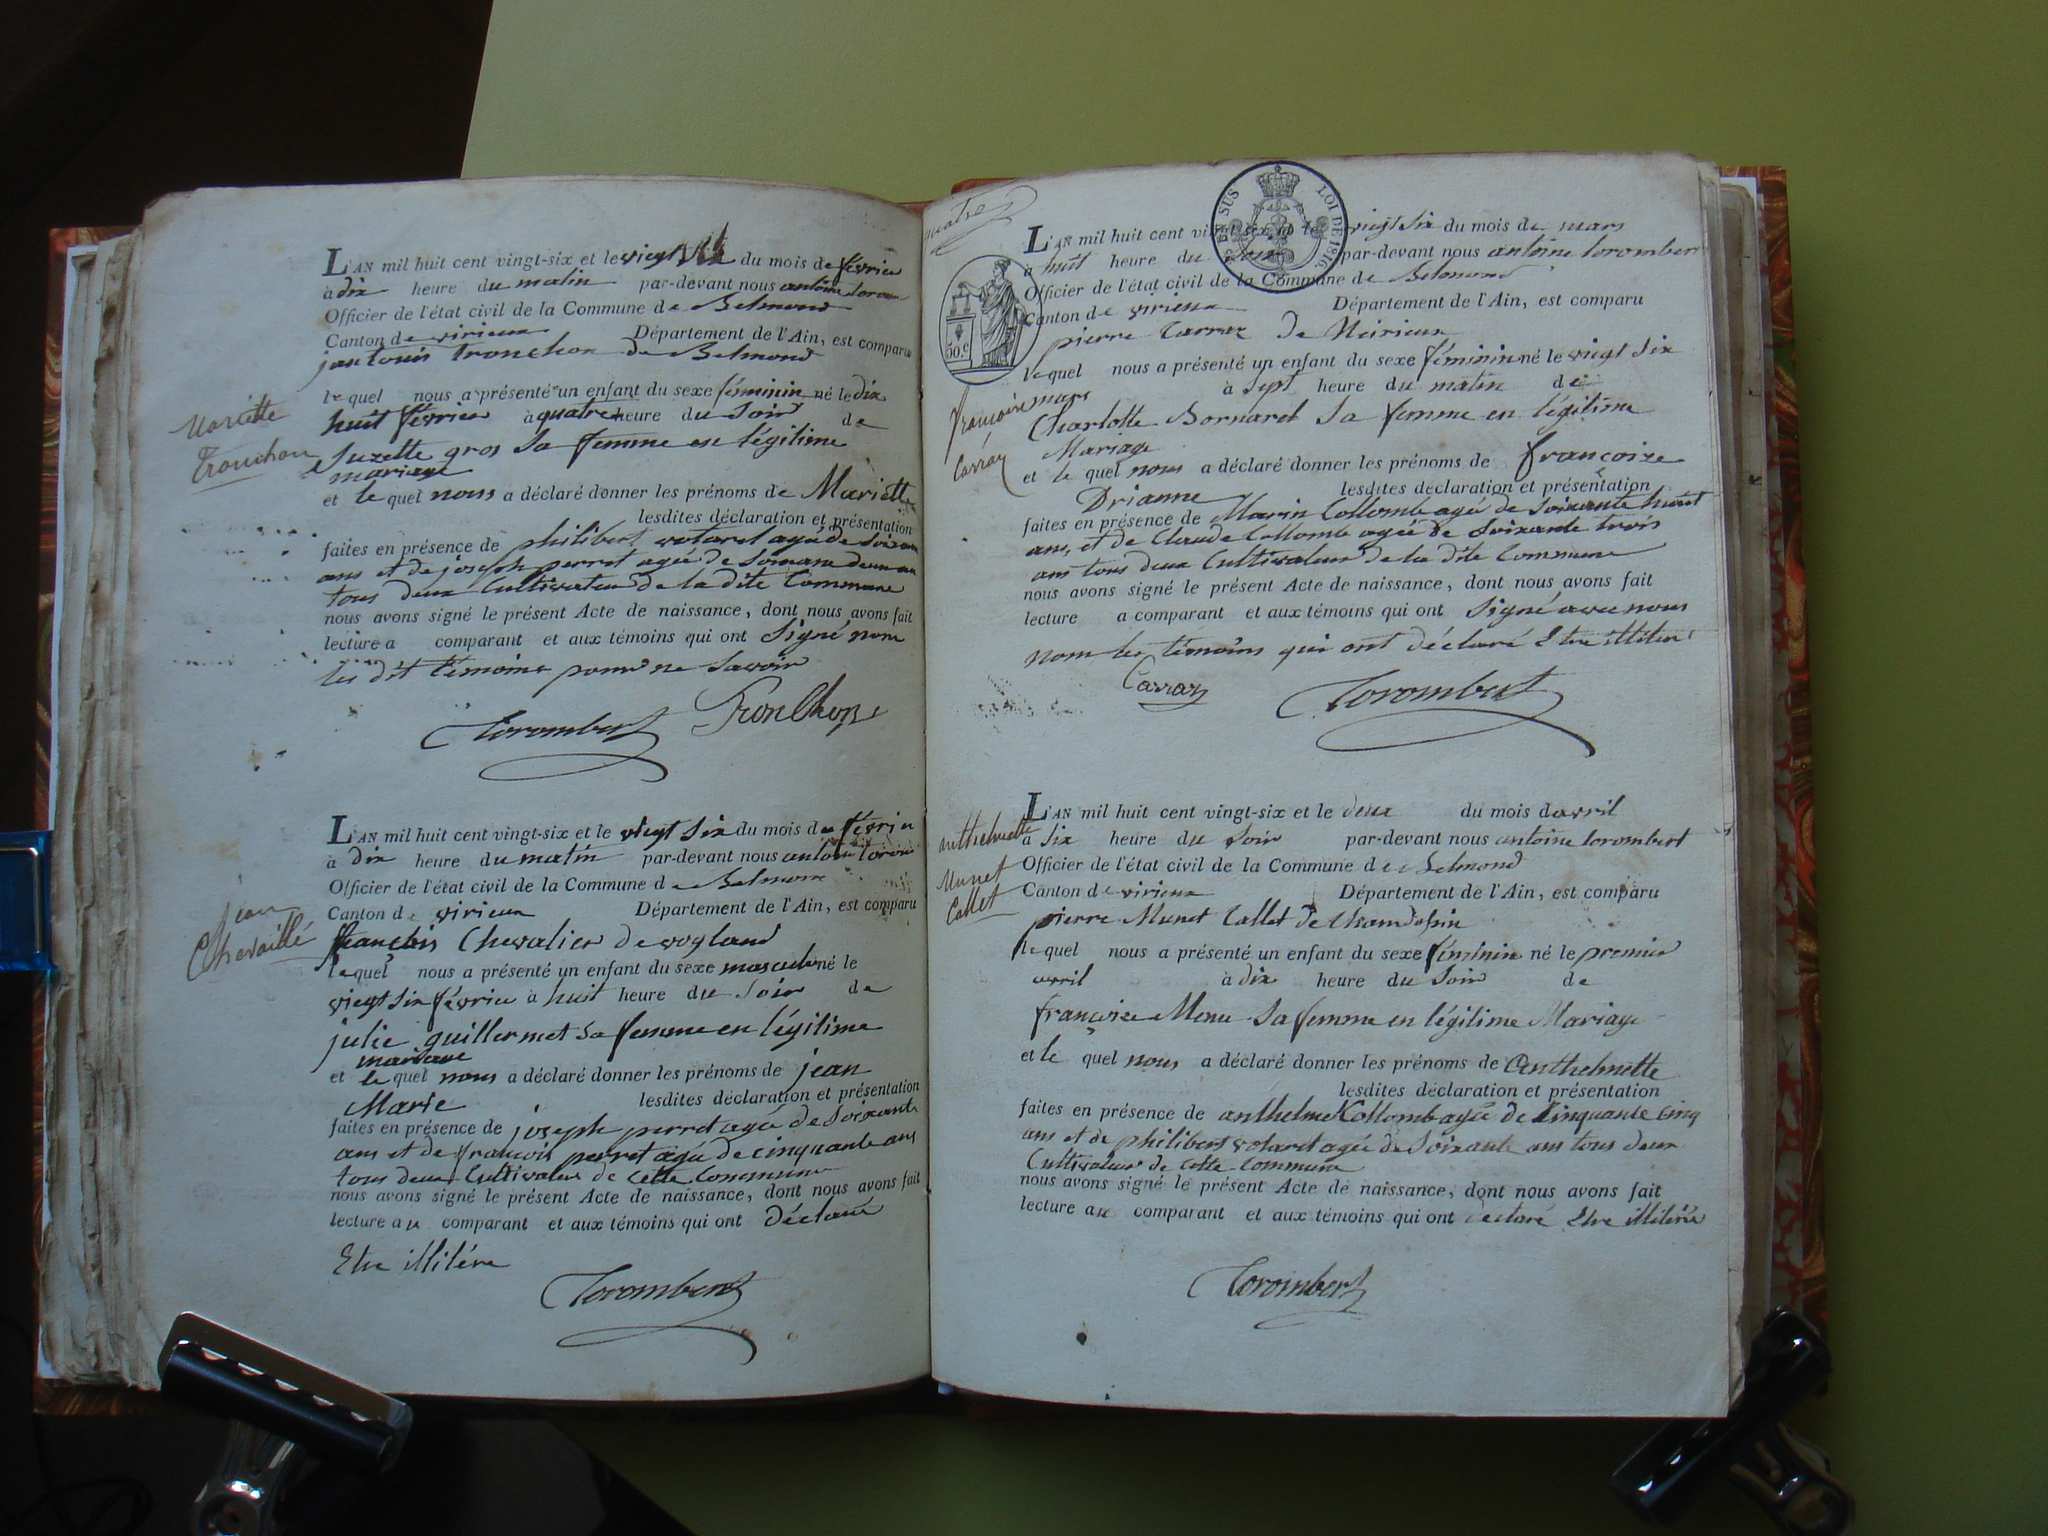 L'AN mil huit cent vingt-six et le vingt du mois de février
à dix heure du matin par-devant nous antoine torom
Officier de l'état civil de la Commune de Belmond
Canton de virieux Département de l'Ain, est comparu
jan louis tronchon de Belmond
lequel nous a présenté un enfant du sexe féminin né le dix
huit février à quatre heure du Soir de
Suzette gros Sa femme en légitime
mariage
et le quel nous a déclaré donner les prénoms de Mariette
lesdites déclaration et présentation
faites en présence de philibert votaret agée de Soixan
ans et de joseph perret agée de
tous deux Cultivateur de la dite Commune
nous avons signé le présent Acte de naissance, dont nous avons fait
lecture a comparant et aux témoins qui ont Signé nom
les dit témoins pour ne Savoir
Torombert TronChon
Mariette
Tronchon
L'AN mil huit cent vingt-six et le vingt Six du mois de février
à dix heure du matin par-devant nous antoine torom
Officier de l'état civil de la Commune de Belmond
Canton de virieux Département de l'Ain, est comparu
françois Chevalier de vogland
lequel nous a présenté un enfant du sexe masculin né le
vingt six février à huit heure du Soir de
julie guillermet Sa femme en légitime
mariage
et le quel nous a déclaré donner les prénoms de jean
Marie lesdites déclaration et présentation
faites en présence de joseph perret agée de Soixante
ans et de françois perret agée de cinquante ans
tous deux Cultivateur de Cette Commune
nous avons signé le présent Acte de naissance, dont nous avons fait
lecture au comparant et aux témoins qui ont déclaré
Etre illitére
Torombert
jean
Chevaillé
quatre
ET SUS LOI DE 1816
50.c
L'AN mil huit cent vingt-six et le vingt Six du mois de mars
à huit heure du Soir par-devant nous antoine torombert
Officier de l'état civil de la Commune de Belmond
Canton de virieux Département de l'Ain, est comparu
pierre Carraz de
lequel nous a présenté un enfant du sexe féminin né le vingt six
mars à Sept heure du matin de
Charlotte Bornaret Sa femme en légitime
Mariage
et le quel nous a déclaré donner les prénoms de françoise
Drianne lesdites déclaration et présentation
faites en présence de Marin Collomb agée de Soixante huit
ans, et de Claude Collomb agée de Soixante trois
ans tous deux Cultivateur de la dite Commune
nous avons signé le présent Acte de naissance, dont nous avons fait
lecture a comparant et aux témoins qui ont Signé avec nous
nom les témoins qui ont déclaré Etre illitére
Carraz Torombert
françoise
Carraz
L'AN mil huit cent vingt-six et le deux du mois d avril
à Six heure du Soir par-devant nous antoine torombert
Officier de l'état civil de la Commune de Belmond
Canton de virieux Département de l'Ain, est comparu
pierre Munet Callet de
lequel nous a présenté un enfant du sexe féminin né le premier
avril à dix heure du Soir de
françoise Menu Sa femme en légitime Mariage
et le quel nous a déclaré donner les prénoms de Anthelmette
lesdites déclaration et présentation
faites en présence de anthelme Collomb agée de Cinquante Cinq
ans et de philibert votaret agée de Soixante ans tous deux
Cultivateur de Cette Commune
nous avons signé le présent Acte de naissance, dont nous avons fait
lecture au comparant et aux témoins qui ont déclaré Etre illitérée
Torombert
anthelmette
Munet
Callet